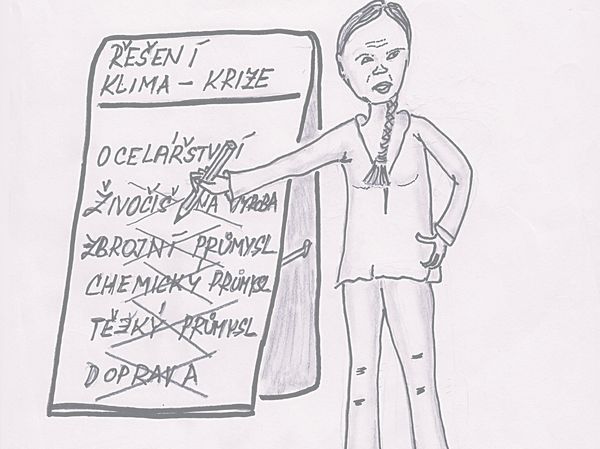 ŘEŠENÍ
KLIMA - KRIZE
OCELÁŘSTVÍ
ŽIVOČIŠNÁ VÝROBA
ZBROJNÍ PRŮMYSL
CHEMICKÝ PRŮMYSL
TĚŽKÝ PRŮMYSL
DOPRAVA